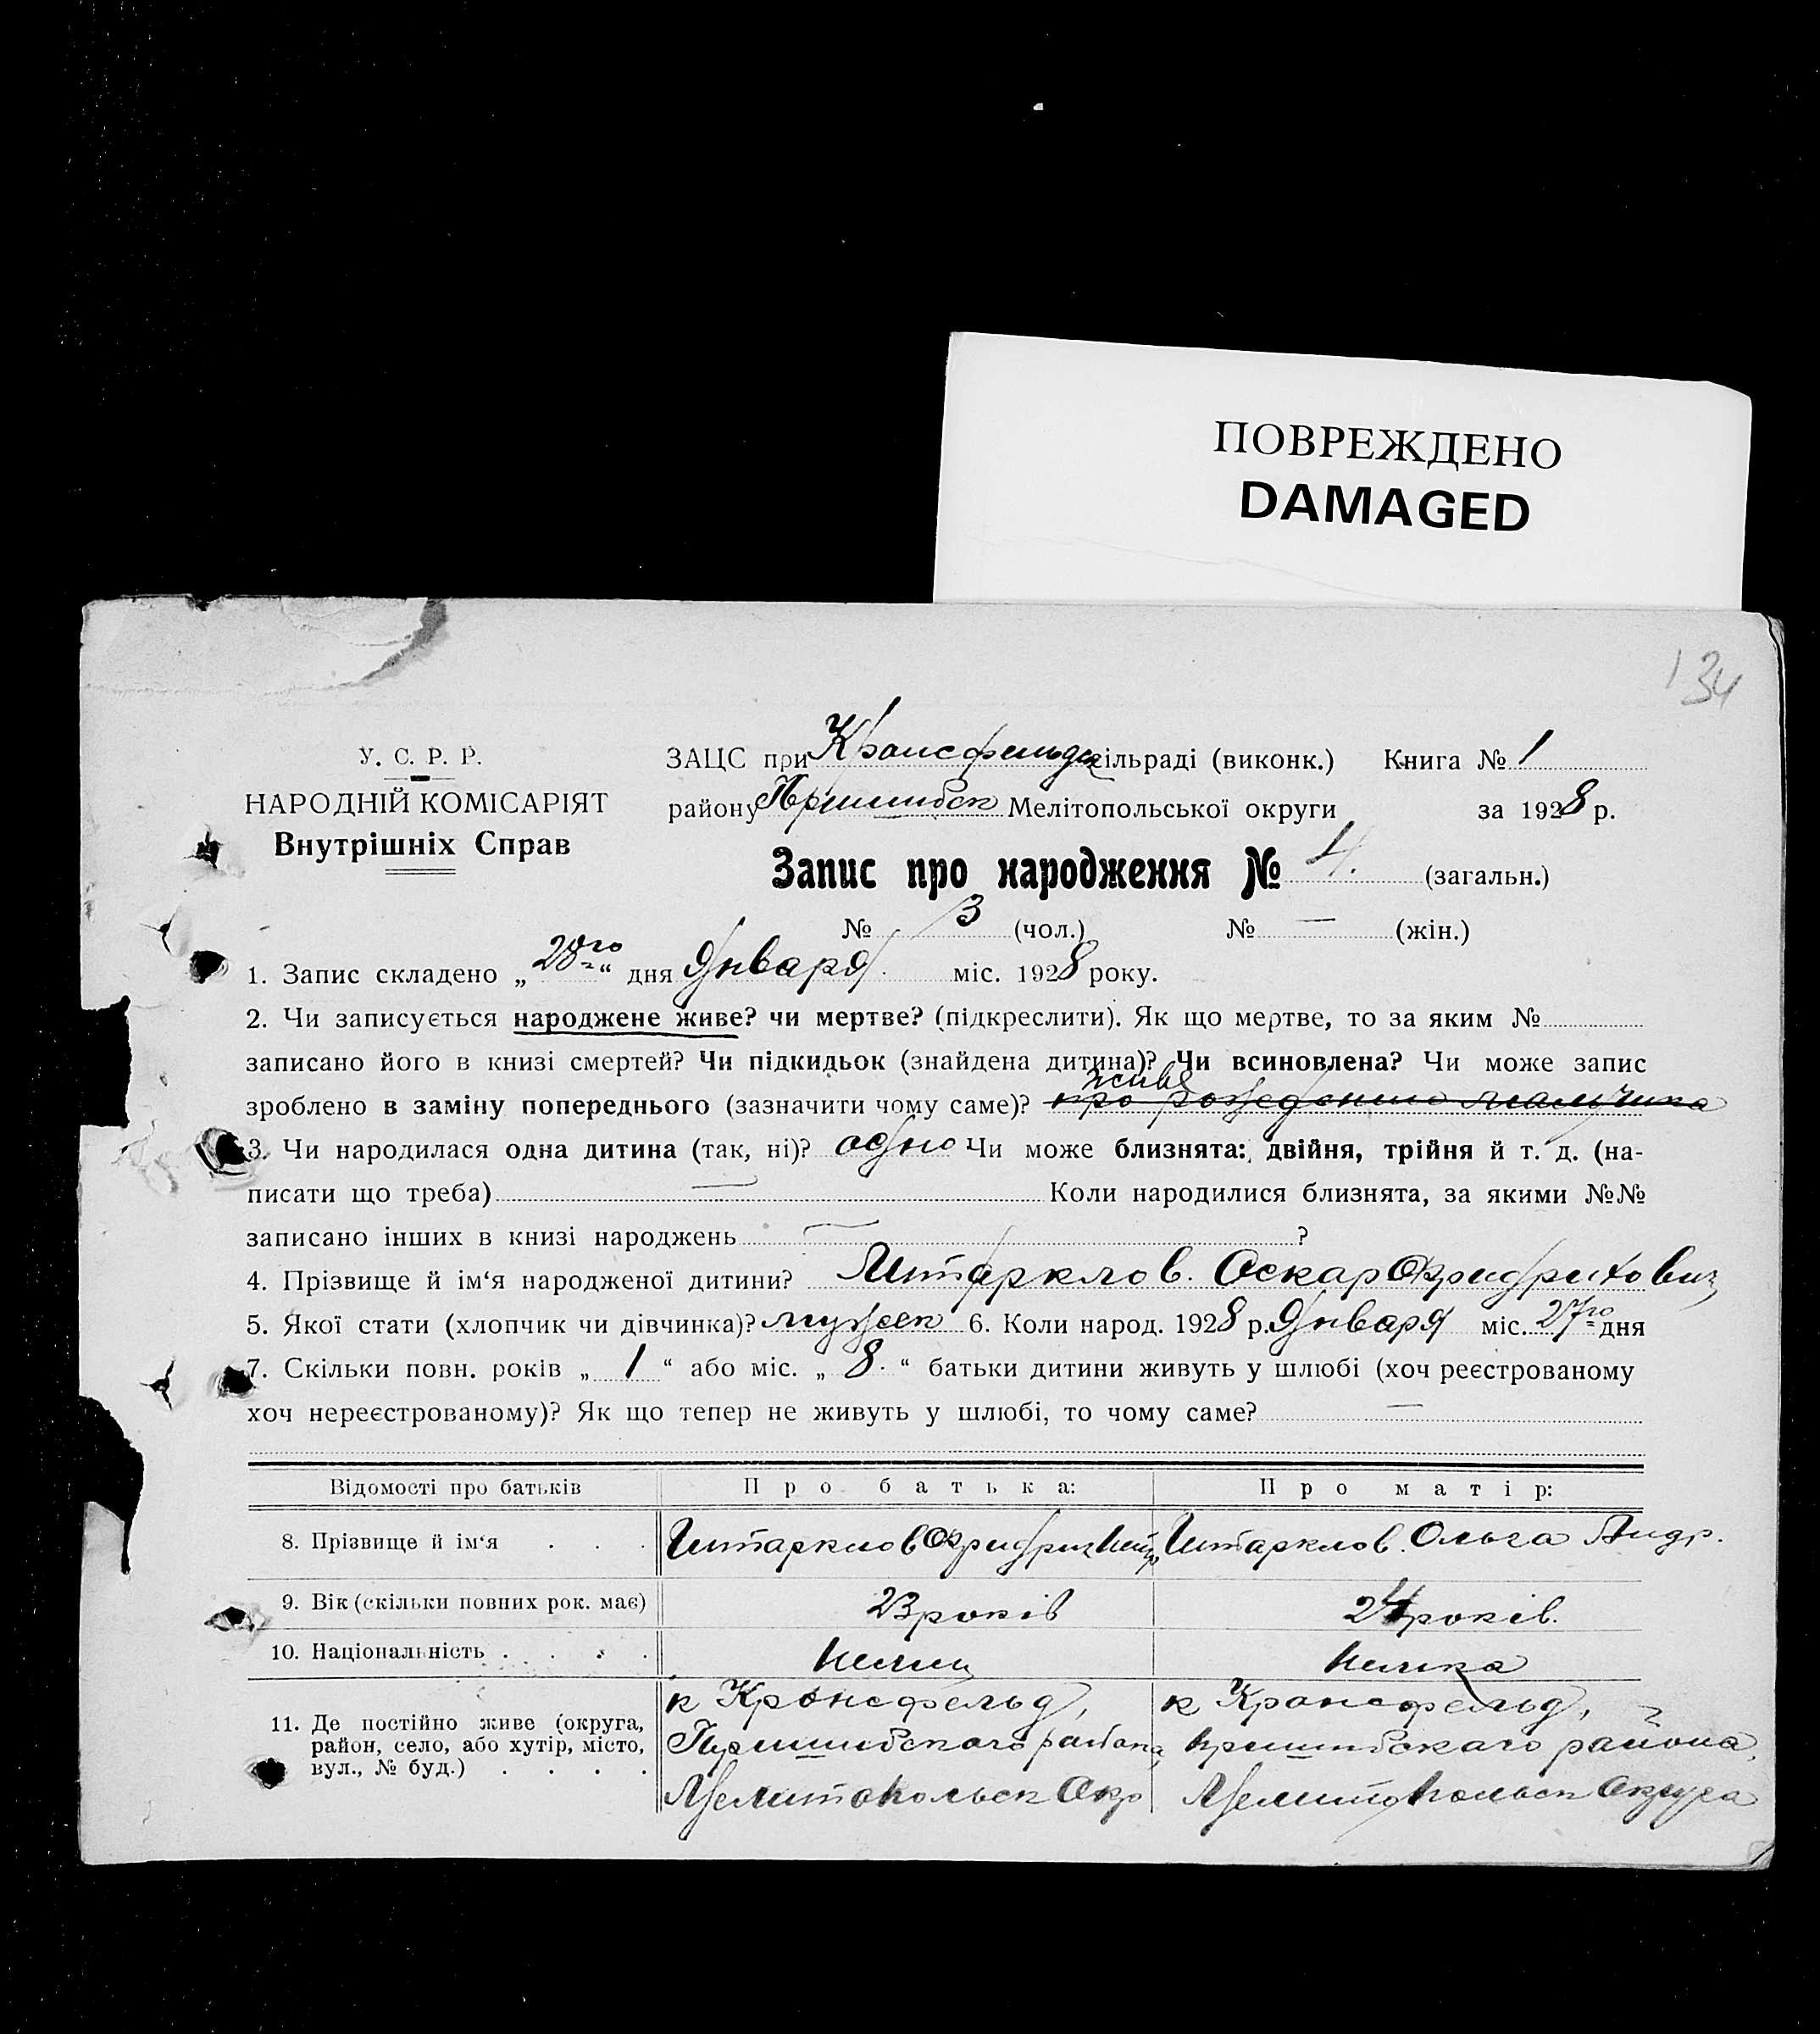 ПОВРЕЖДЕНО
DAMAGED
134
У. С. Р. Р.
НАРОДНІЙ КОМІСАРІЯТ
Внутрішніх Справ
ЗАЦС при Кронсфельдс сільраді (виконк.) Книга № 1
району Пришибск Мелітопольської округи за 1928 р.
Запис про народження № 4. (загальн.)
№ 3 (чол.) № — (жін.)
1. Запис складено „28го“ дня Января міс. 1928 року.
2. Чи записується народжене живе? чи мертве? (підкреслити). Як що мертве, то за яким №
записано його в книзі смертей? Чи підкидьок (знайдена дитина)? Чи всиновлена? Чи може запис
живе
зроблено в заміну попереднього (зазначити чому саме)? про рождение мальчика
3. Чи народилася одна дитина (так, ні)? одно Чи може близнята: двійня, трійня й т. д. (на-
писати що треба) — Коли народилися близнята, за якими №№
записано інших в книзі народжень — ?
4. Прізвище й ім‘я народженої дитини? Штарклов. Оскар Фридрихович
5. Якої стати (хлопчик чи дівчинка)? мужск 6. Коли народ. 1928 р. Января міс. 27го дня
7. Скільки повн. років „1“ або міс. „8.“ батьки дитини живуть у шлюбі (хоч реєстрованому
хоч нереєстрованому)? Як що тепер не живуть у шлюбі, то чому саме? —
Відомості про батьків Про батька: Про матір:
8. Прізвище й ім‘я . . . Штарклов Фридрих Штарклов. Ольга Андр.
9. Вік (скільки повних рок. має) 23 років 24 років.
10. Національність . . . . Немец Немка
11. Де постійно живе (округа, район, село, або хутір, місто, вул., № буд.) . . . .
к Кронсфельд, к Кронсфельд,
Пришибского района, Пришибскаго района,
Мелитопольск Окр Мелитопольск Округа